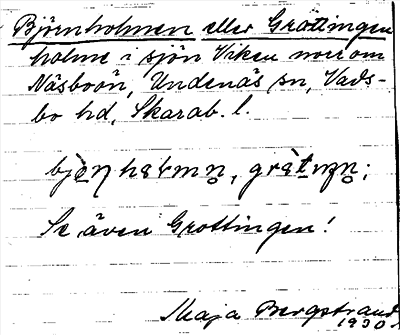 Björnholmen eller Grottingen
holme i sjön Viken norr om
Näsboön, Undenäs sn, Vads-
bo hd, Skarab. l.
Se även Grottingen!
Maja Bergstrand
1930.